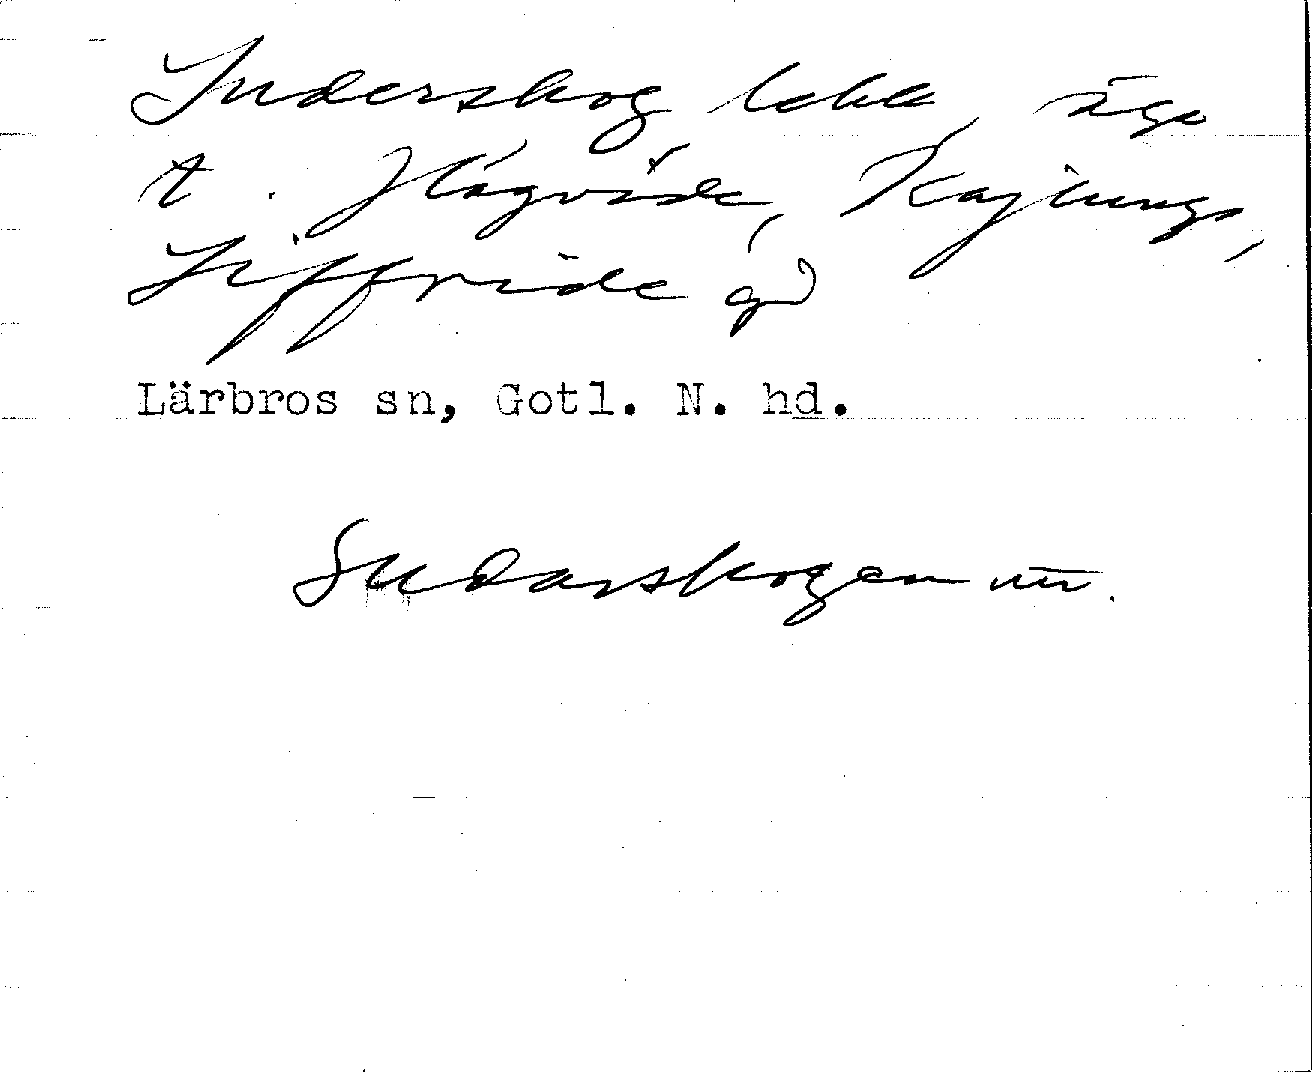 Suderskog lokk, ägo
t. Hägvide, Kajlungs,
Liffride gd
Lärbros sn, Gotl. N. hd.
Sudarskogen